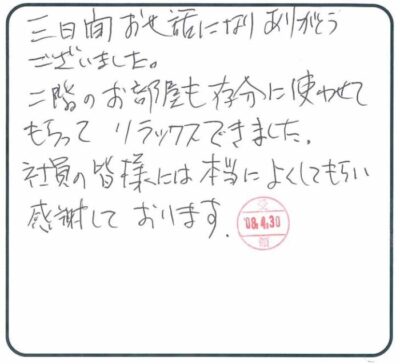 三日間お世話になりありがとう
ございました。
二階のお部屋も存分に使わせて
もらって リラックスできました.
社員の皆様には本当によくしてもらい
感謝して おります.
08.4.30